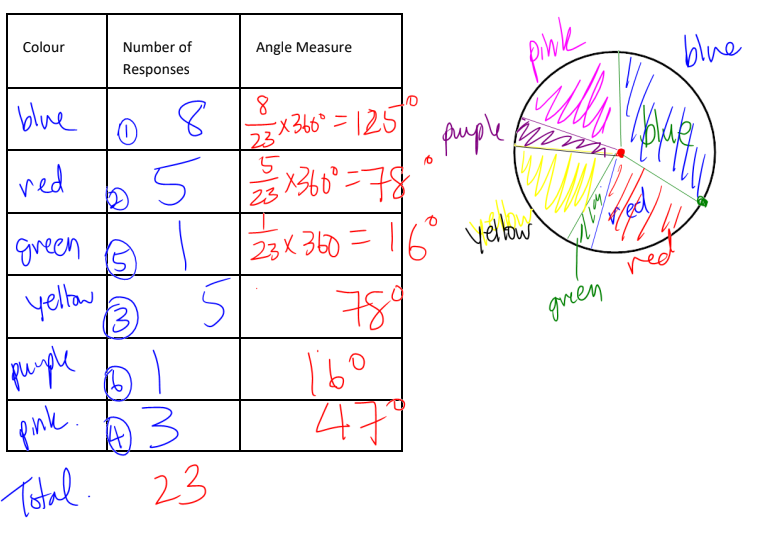 Colour Number of Responses Angle Measure
blue ① 8 8/23 ×360° = 125°
red ② 5 5/23 ×360° = 78°
green ⑤ 1 1/23 × 360 = 16°
yellow ③ 5 78°
purple ⑥ 1 16°
pink. ④ 3 47°
Total. 23
pink
blue
purple
blue
yellow
red
red
green